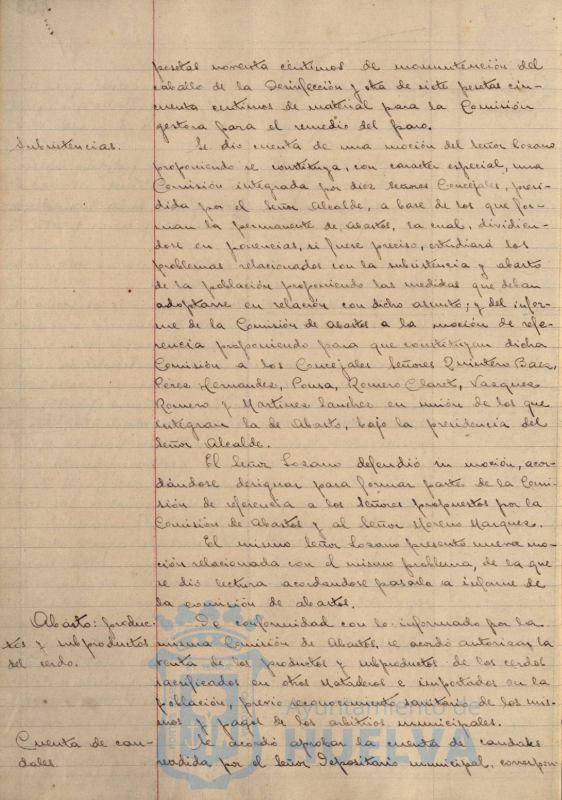 pesetas noventa céntimos de manutención del
caballo de la Desinfección y otra de siete pesetas cin-
cuenta centimos de material para la Comisión
gestora para el remedio del paro.
Subsistencias.
Se dio cuenta de una moción del Señor Lozano
proponiendo se constituya, con carácter especial, una
Comisión integrada por diez Señores Concejales, presi-
dida por el Señor Alcalde, a base de los que for-
man la permanente de Abastos, la cual, dividien-
dose en ponencias, si fuese preciso, estudiará los
problemas relacionados con la subsistencia y abasto
de la población proponiendo las medidas que deban
adoptarse en relación con dicho asunto; y del infor-
me de la Comisión de Abastos a la moción de refe-
rencia proponiendo para que constituyan dicha
Comisión a los Concejales Señores Quintero Baez,
Pérez Hernandez, Ponsa, Romero Claret, Vazquez
Romero y Martínez Sanchez en unión de los que
integran la de Abasto, bajo la presidencia del
Señor Alcalde.
El Señor Lozano defendió su moción, acor-
dándose designar para formar parte de la Comi-
sión de referencia a los Señores propuestos por la
Comisión de Abastos y al Señor Moreno Marquez.
El mismo Señor Lozano presentó nueva mo-
ción relacionada con el mismo problema, de la que
se dió lectura acordandose pasarla a informe de
la comisión de abastos.
Abasto: produc-
tos y subproductos
del cerdo.
De conformidad con lo informado por la
misma Comisión de Abastos, se acordó autorizar la
venta de los productos y subproductos de los cerdos
sacrificados en otros Mataderos e importados en la
población, previo reconocimiento sanitario de los mis-
mos y pago de los arbitrios municipales.
Cuenta de cau-
dales.
Se acordó aprobar la cuenta de caudales
rendida por el Señor Depositario municipal, correspon-
Ayuntamiento de
HUELVA